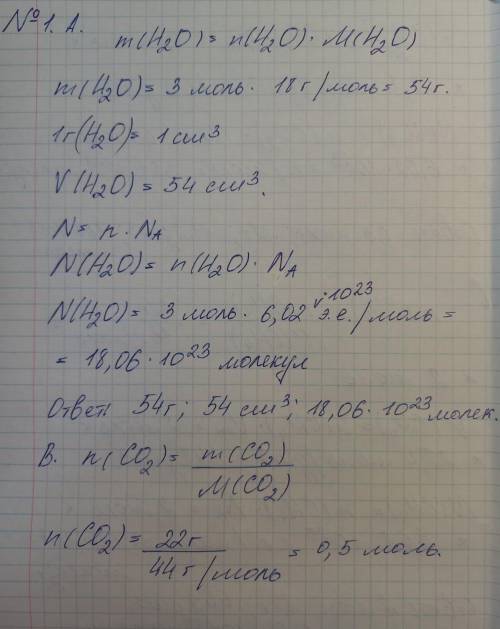 № 1. А.
m(H₂O) = n(H₂O) · M(H₂O)
m(H₂O) = 3 моль · 18 г/моль = 54 г.
1г(H₂O) = 1 см³
V(H₂O) = 54 см³.
N = n · Nᴀ
N(H₂O) = n(H₂O) · Nᴀ
N(H₂O) = 3 моль · 6,02 · 10²³ э.е./моль =
= 18,06 · 10²³ молекул
Ответ: 54г; 54 см³; 18,06 · 10²³ молек.
В. n(CO₂) = m(CO₂)
M(CO₂)
n(CO₂) = 22г = 0,5 моль.
44 г/моль